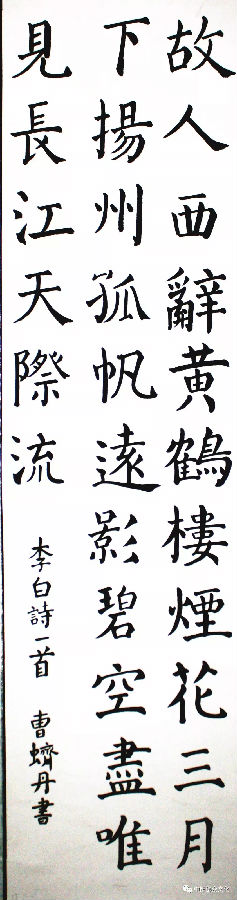 故人西辭黃鶴樓煙花三月
下揚州孤帆遠影碧空盡唯
見長江天際流
李白詩一首 曹蠐丹書